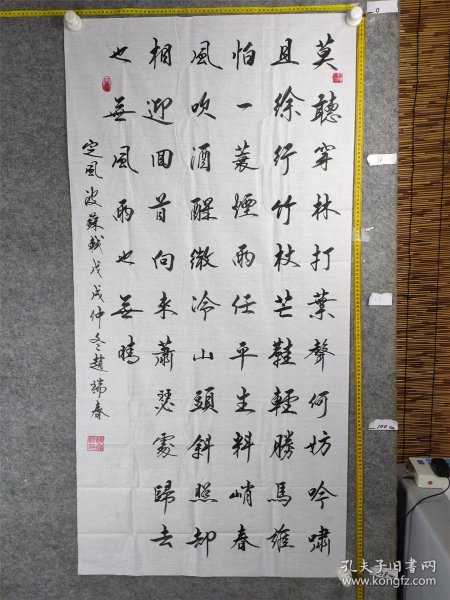 莫聽穿林打葉聲何妨吟嘯
且徐行竹杖芒鞋輕勝馬誰
怕一蓑煙雨任平生料峭春
風吹酒醒微冷山頭斜照却
相迎回首向來蕭瑟處歸去
也無風雨也無晴
定風波蘇軾戊戌仲冬趙瑞春
孔夫子旧书网
www.kongfz.com